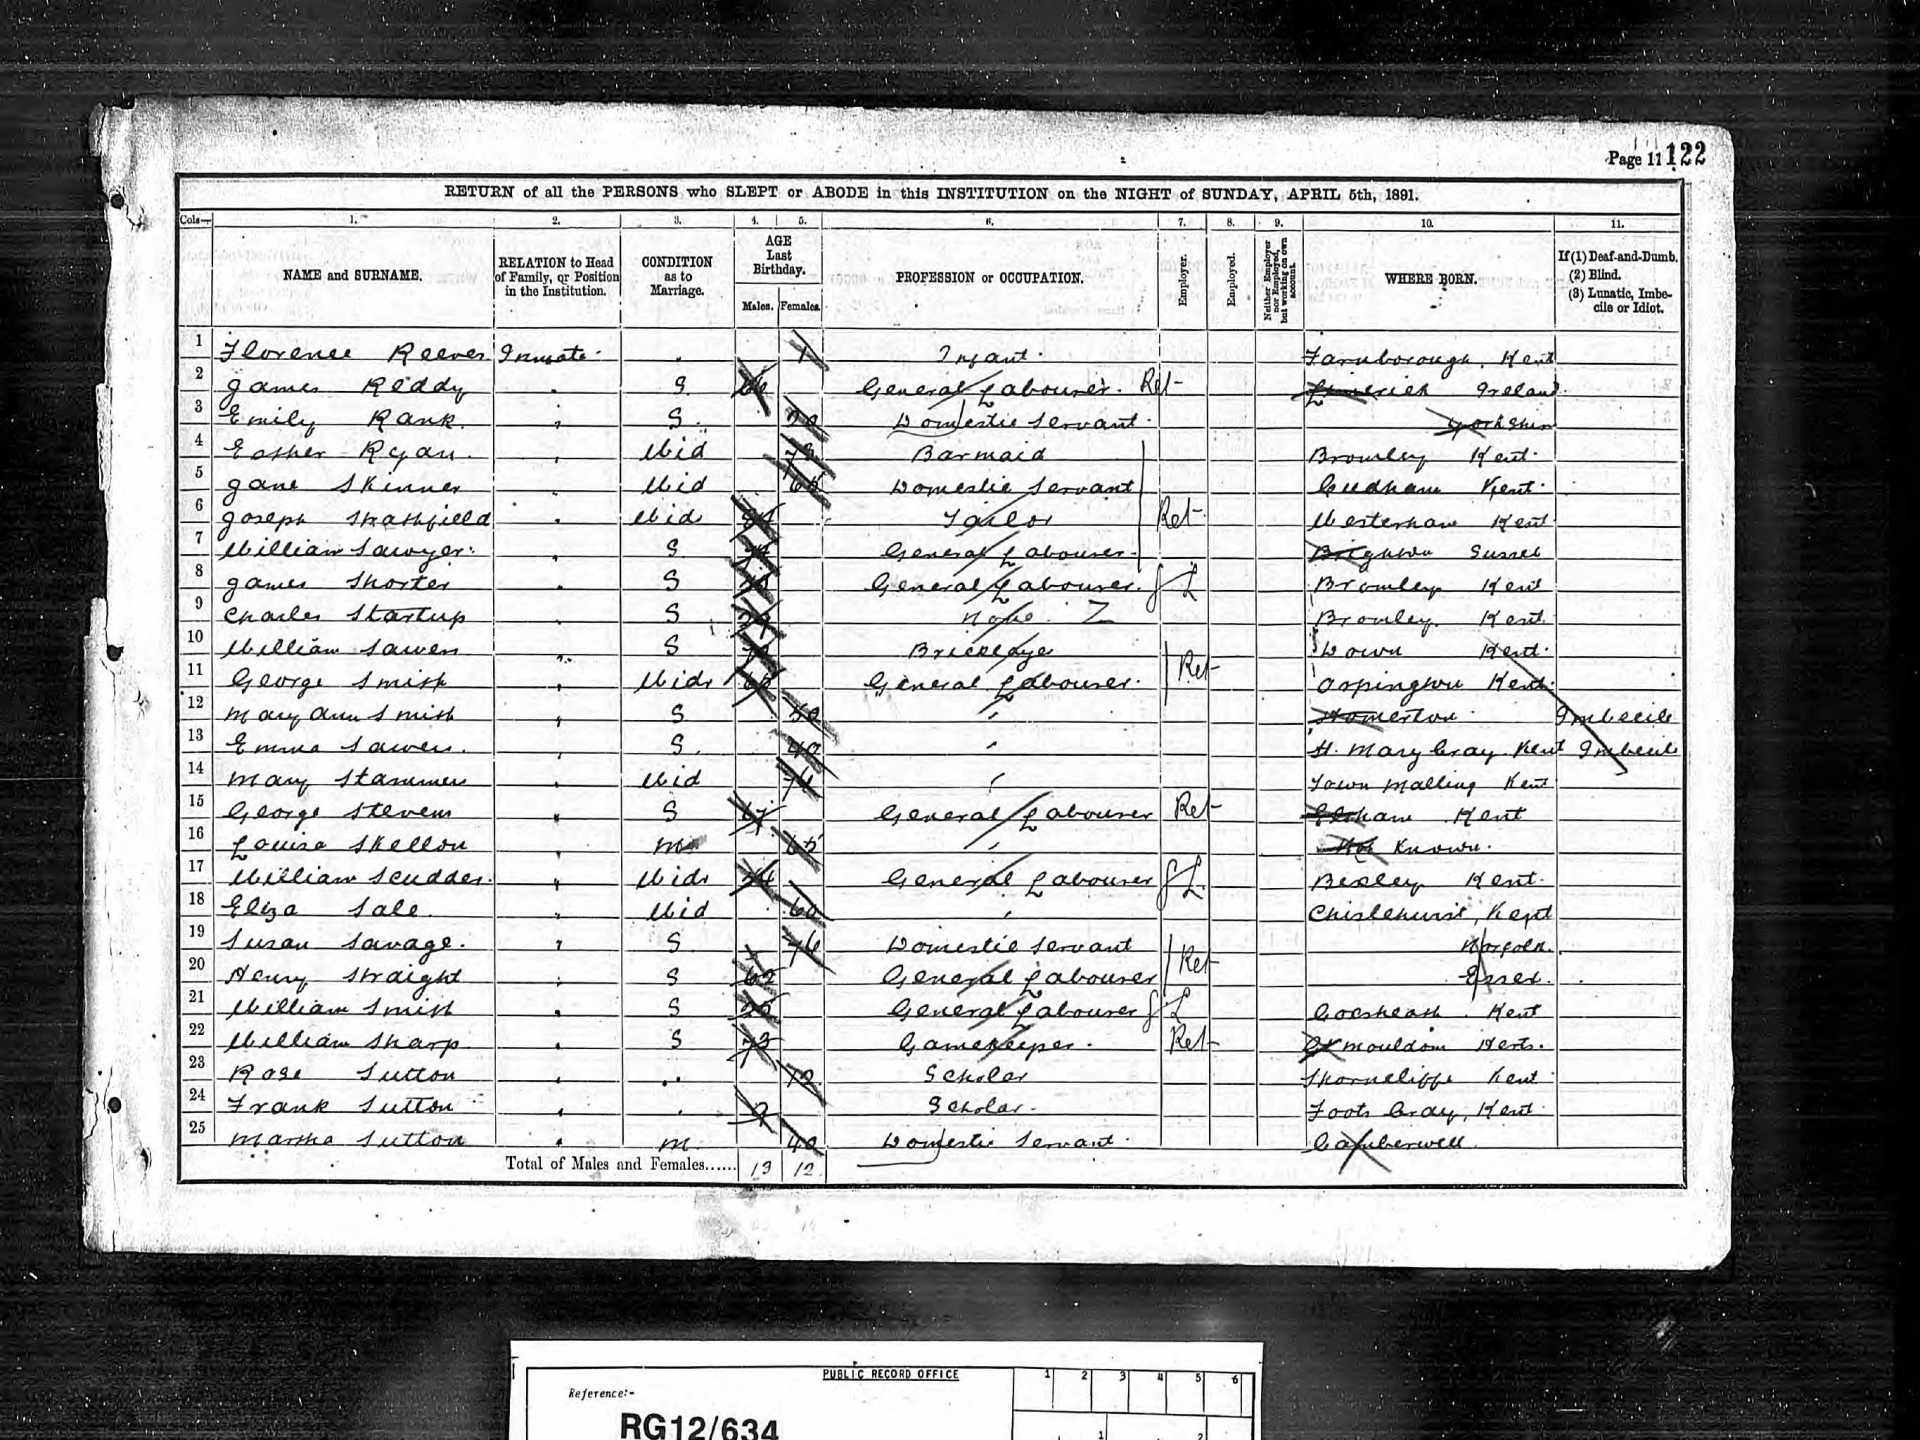 Page 11 122
RETURN of all the PERSONS who SLEPT or ABODE in this INSTITUTION on the NIGHT of SUNDAY, APRIL 5th, 1891.
Cols— 1. 2. 3. 4. 5. 6. 7. 8. 9. 10. 11.
NAME and SURNAME. RELATION to Head of Family, or Position in the Institution. CONDITION as to Marriage. AGE Last Birthday. Males. Females. PROFESSION or OCCUPATION. Employer. Employed. Neither Employer nor Employed, but working on own account. WHERE BORN. If (1) Deaf-and-Dumb. (2) Blind. (3) Lunatic, Imbecile or Idiot.
1 Florence Reeves Inmate 1 Infant Farnborough, Kent
2 James Reddy S General Labourer. Ret Limerick Ireland
3 Emily Rank. S. Domestic Servant Yorkshire
4 Esther Ryan. Wid Barmaid Bromley Kent
5 Jane Skinner Wid 65 Domestic Servant Cudham Kent
6 Joseph Strathfield Widr Tailor Ret Westerham Kent
7 William Sawyer S General Labourer Brighton Sussex
8 James Shorter S General Labourer. Bromley Kent
9 Charles Startup S None Bromley. Kent
10 William Sawen S Down Kent
11 George Smith Widr General Labourer. Ret Orpington Kent
12 Mary Ann Smith S 50 Homerton Imbecile
13 Emma Sawen. S. 40 St. Mary Cray Kent Imbecile
14 Mary Stammer Wid 74 Town Malling Kent
15 George Stevens S 67 General Labourer Ret Kent
16 Louisa Skellon M 65 Not Known.
17 William Scudder. Widr General Labourer Bexley Kent
18 Eliza Sale. Wid 60 Chislehurst, Kent
19 Susan Savage. S 76 Domestic Servant Norfolk.
20 Henry Straight S General Labourer Ret Essex.
21 William Smith S General Labourer Kent
22 William Sharp. S 73 Gamekeeper. Ret Herts.
23 Rose Sutton 12 Scholar Shorncliffe Kent
24 Frank Sutton 9 Scholar. Foots Cray, Kent
25 Martha Sutton M. 40 Domestic Servant Camberwell
Total of Males and Females...... 13 12
PUBLIC RECORD OFFICE
1 2 3 4 5 6
Reference:-
RG12/634
1 2